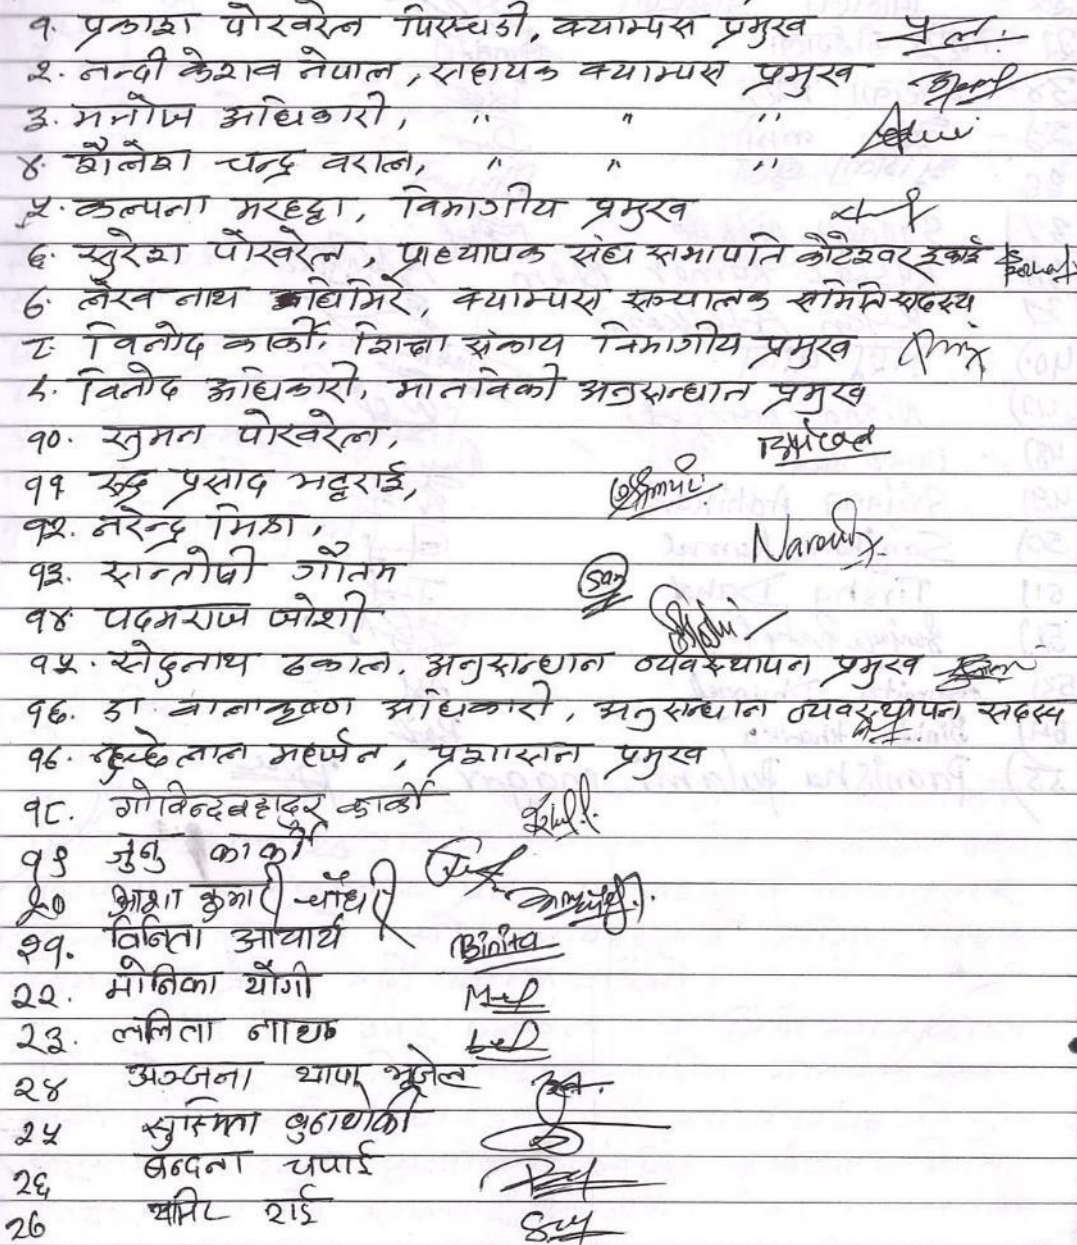 १. प्रकाश पोखरेल पिएचडी, क्याम्पस प्रमुख
२. नन्दी केशव नेपाल, सहायक क्याम्पस प्रमुख
३. मनोज अधिकारी, " " "
४. शैलेश चन्द्र वराल, " " "
५. कल्पना मरहट्ठा, विभागीय प्रमुख
६. सुरेश पोखरेल, प्राध्यापक संघ सभापति कोटेश्वर इकाई
७. लेखनाथ घिमिरे, क्याम्पस सञ्चालक समिति सदस्य
८. विनोद कार्की, शिक्षा संकाय विभागीय प्रमुख
९. विनोद अधिकारी, मानविकी अनुसन्धान प्रमुख
१०. सुमन पोखरेल,
११ रुद्र प्रसाद भट्टराई,
१२. नरेन्द्र मिश्रा, Narendra
१३. सन्तोषी गौतम San
१४ पदमराज जोशी
१५. सेदुनाथ ढकाल, अनुसन्धान व्यवस्थापन प्रमुख
१६. डा बालाकृष्ण अधिकारी, अनुसन्धान व्यवस्थापन सदस्य
१७. लाल महर्जन, प्रशासन प्रमुख
१८. गोविन्दबहादुर कार्की
१९ जुनु कार्की
२० आशा कुमारी चौधरी
२१. विनिता आचार्य Binita
२२. मोनिका योगी
२३. ललिता नाथ
२४ अञ्जना थापा भूजेल
२५ सुस्मिता बुढाथोकी
२६ बन्दना चपाई
२७ राई